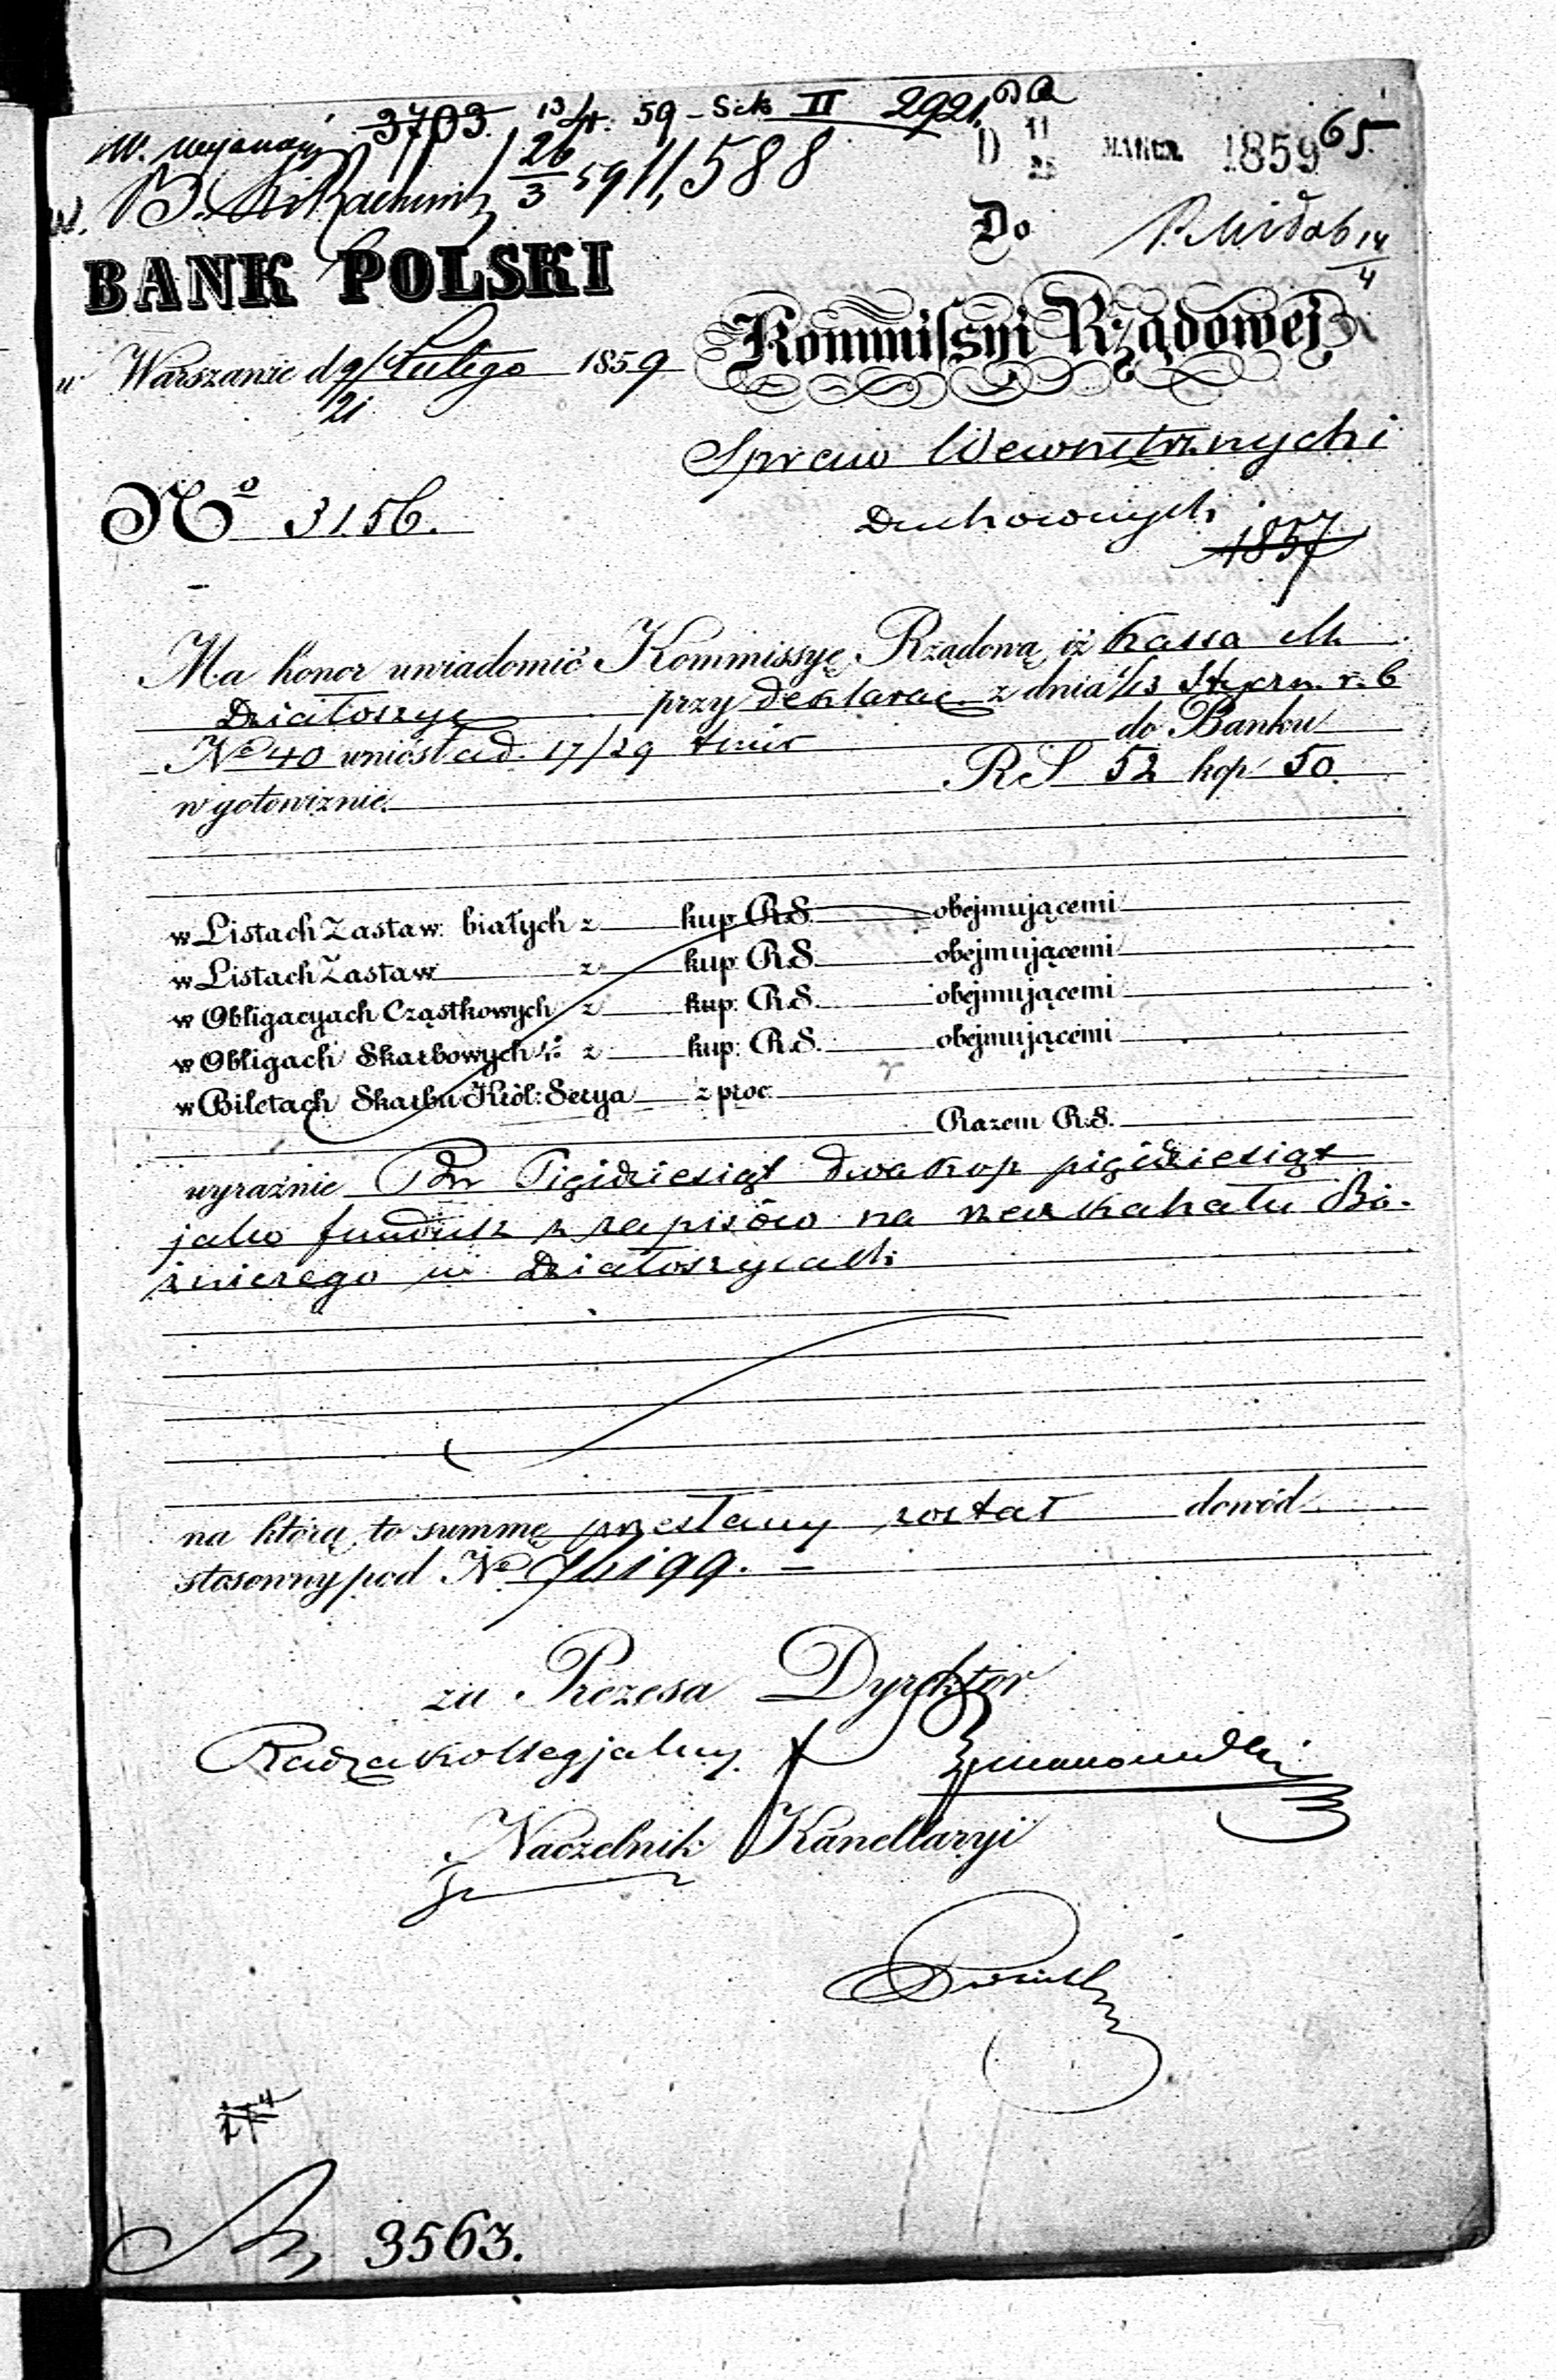 3703. 13/4. 59 - Sek II 2921
26/3 59 11,588
D 11/23 MARCA 1859 65.
BANK POLSKI
Do
14/4
Kommissyi Rządowej
w Warszawie d 9/21 Lutego 1859
Spraw Wewnętrznych i
Duchownych
No 3156.
1857
Ma honor uwiadomić Kommissyę Rządową iż Kassa M.
Działoszyc przy deklarac. z dnia 1/13 Styczn. r. b
No 40 wniosła d. 17/29 do Banku
w gotowiznie RS 52 kop 50
w Listach Zastaw: białych z kup RS. obejmującemi
w Listach Zastaw z kup: RS. obejmującemi
w Obligacyach Cząstkowych z kup: RS. obejmującemi
w Obligach Skarbowych z kup: RS. obejmującemi
w Biletach Skarbu Król: Serya z proc
Razem RS.
wyraźnie Rsr Pięćdziesiąt dwa kop pięćdziesiąt
jako fundusz z zapisów na rzecz kahału Bó-
żniczego w Działoszycach
na którą to summę przesłany został dowód
stosowny pod No
za Prezesa Dyrektor
Radzca Kollegjalny
Naczelnik Kancellaryi
3563.